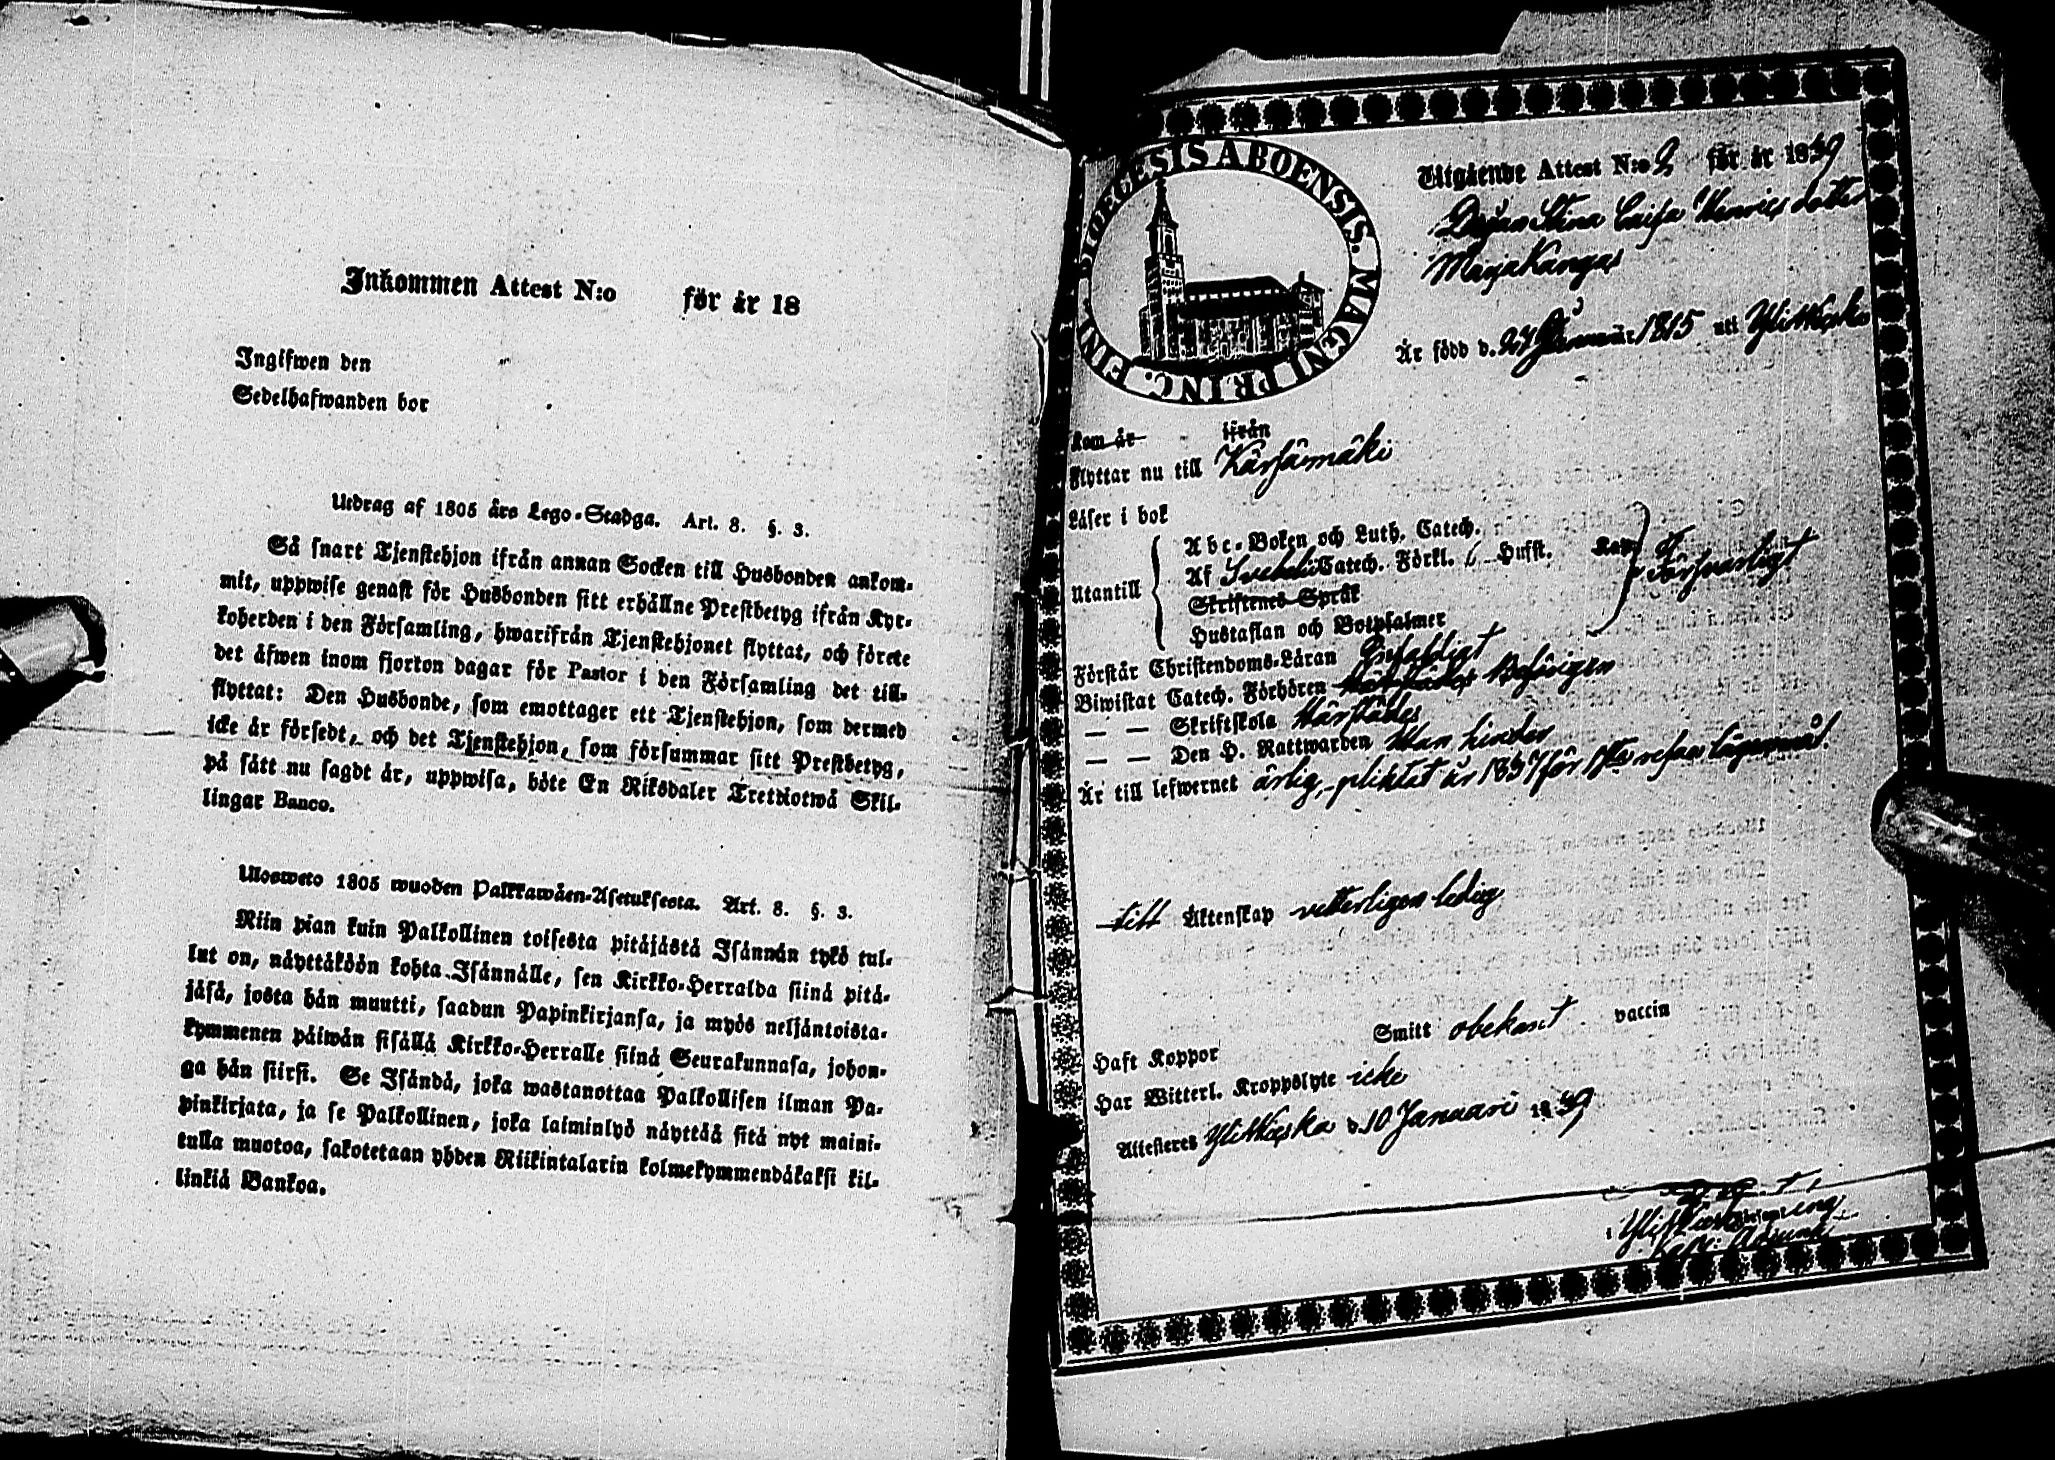 Inkommen Attest N:o för år 18
Ingifwen den
Sedelhafwanden bor
Utdrag af 1805 års Lego-Stadga. Art. 8. §. 3.
Så snart Tjenstehjon ifrån annan Socken till Husbonden ankom-
mit, uppwise genast för Husbonden sitt erhållne Prestbetyg ifrån Kyr-
koherden i den Församling, hwarifrån Tjenstehjonet flyttat, och förete
det äfwen inom fjorton dagar för Pastor i den Församling det till-
flyttat: Den Husbonde, som emottager ett Tjenstehjon, som dermed
icke är försedt, och det Tjenstehjon, som försummar sitt Prestbetyg,
på sätt nu sagdt är, uppwisa, böte En Riksdaler Trettiotwå Skil-
lingar Banco.
Ulosweto 1805 wuoden Palkkawäen-Asetuksesta. Art. 8. §. 3.
Niin pian kuin Palkollinen toisesta pitäjästä Isännän tykö tul-
lut on, näyttäköön kohta Isännälle, sen Kirkko-Herralda siinä pitä-
jäsä, josta hän muutti, saadun Papinkirjansa, ja myös neljäntoista-
kymmenen päiwän sisällä Kirkko-Herralle siinä Seurakunnasa, johon-
ga hän siirsi. Se Isändä, joka wastanottaa Palkollisen ilman Pa-
pinkirjata, ja se Palkollinen, joka laiminlyö näyttää sitä nyt maini-
tulla muotoa, sakotetaan yhden Riikintalarin kolmekymmendäkaksi kil-
linkiä Bankoa.
DIOECESIS ABOENSIS. MAGNI PRINC. FINL.
Utgående Attest N:o 2 för år 1839
Stina Caisa Henrics dotter
Marjakangas
Är född d. 27 Januari 1815 uti Ylikkiska
Kom år ifrån
flyttar nu till Kärsämäki
Läser i bok
Utantill
Abc-Boken och Luth. Catech.
Af Svebelii Catech. Förkl. 6 Hufst. Kap. Försvarligt
Skriftenes Språk
Hustaflan och Botpsalmer
Förstår Christendoms-Läran Enfaldigt
Biwistat Catech. Förhören Behörigen
— — Skriftskola Härstädes
— — Den H. Nattwarden Utan hinder
Är till lefwernet ärlig, pliktat år 1837 för 1sta resan lägersmål.
till Äktenskap vetterligen ledig
Haft Koppor Smitt obekant vaccin
Har Witterl. Kroppslyte icke
Attesteres d. 10 Januari 1839